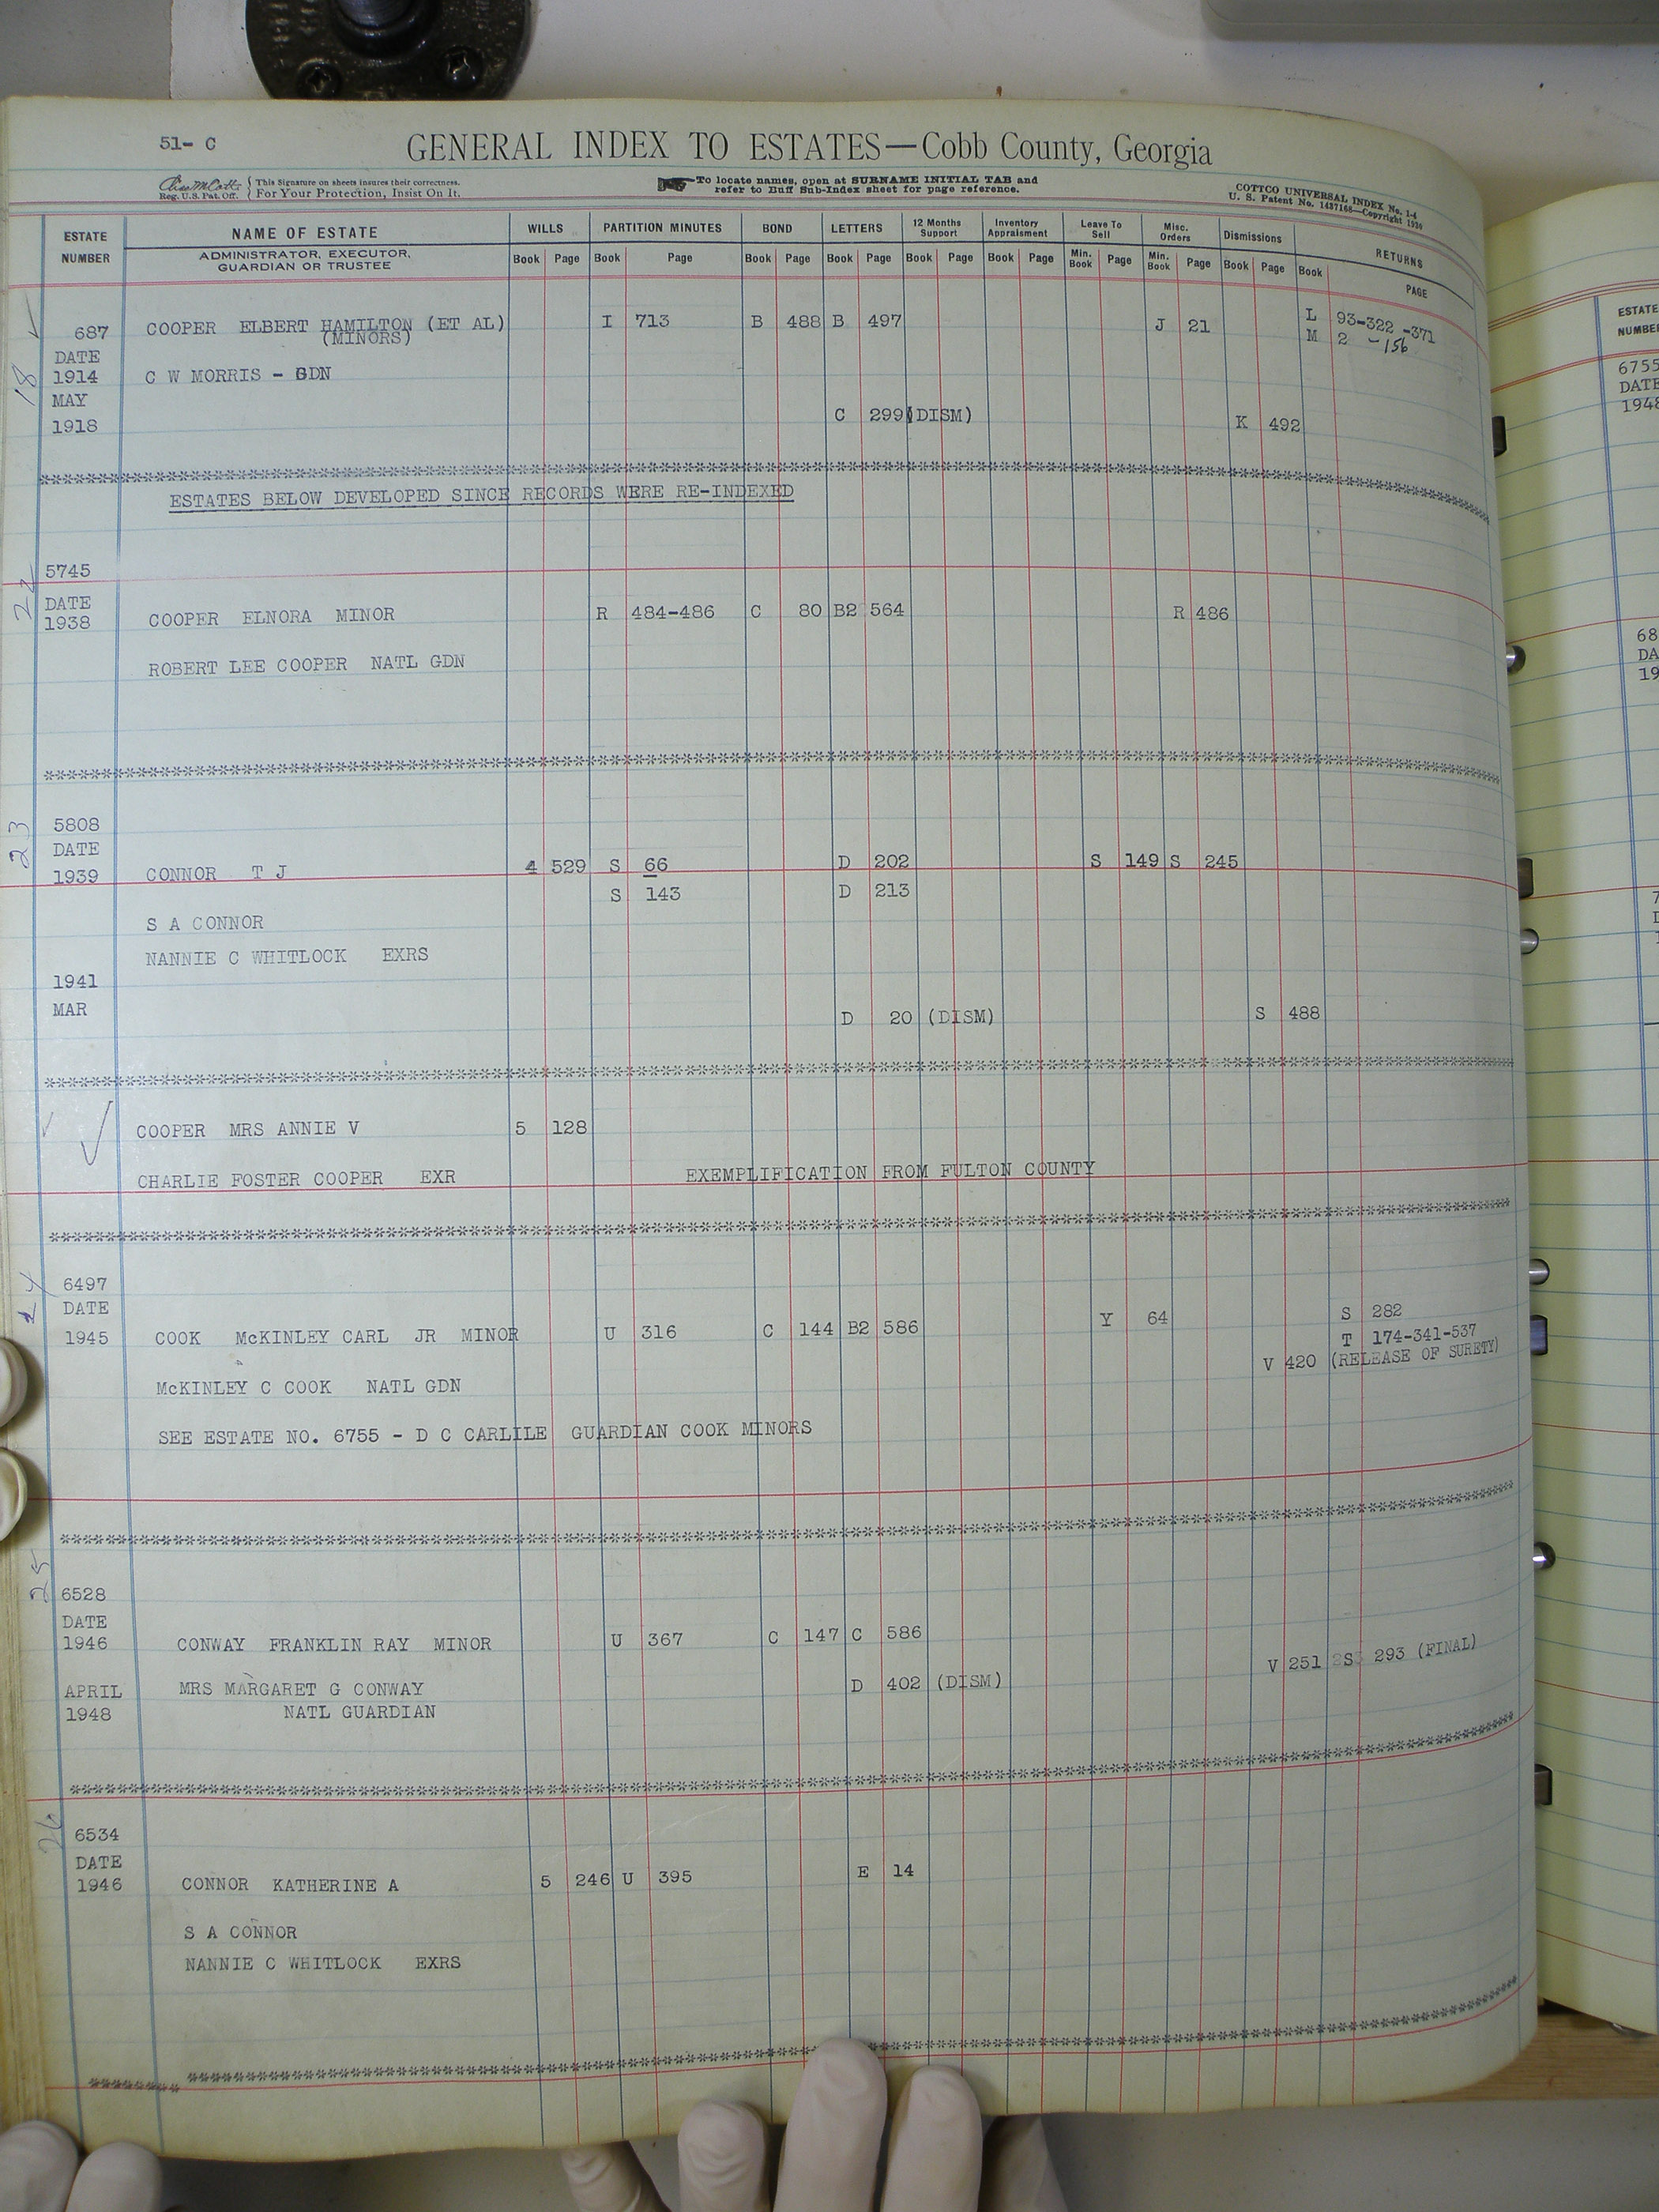 51- C
GENERAL INDEX TO ESTATES—Cobb County, Georgia
Reg. U.S. Pat. Off. This Signature on sheets insures their correctness. For Your Protection, Insist On It.
To locate names, open at SURNAME INITIAL TAB and refer to Buff Sub-Index sheet for page reference.
COTTCO UNIVERSAL INDEX No. 1-4
U. S. Patent No. 1437168—Copyright 1930
ESTATE NUMBER NAME OF ESTATE WILLS PARTITION MINUTES BOND LETTERS 12 Months Support Inventory Appraisment Leave To Sell Misc. Orders Dismissions RETURNS
ADMINISTRATOR, EXECUTOR, GUARDIAN OR TRUSTEE Book Page Book Page Book Page Book Page Book Page Book Page Min. Book Page Min. Book Page Book Page Book PAGE
18 687 COOPER ELBERT HAMILTON (ET AL) I 713 B 488 B 497 J 21 L 93-322 -371
(MINORS) M 2 -156
DATE
1914 C W MORRIS - GDN
MAY
1918 C 299 (DISM) K 492
ESTATES BELOW DEVELOPED SINCE RECORDS WERE RE-INDEXED
22 5745
DATE
1938 COOPER ELNORA MINOR R 484-486 C 80 B2 564 R 486
ROBERT LEE COOPER NATL GDN
23 5808
DATE
1939 CONNOR T J 4 529 S 66 D 202 S 149 S 245
S 143 D 213
S A CONNOR
NANNIE C WHITLOCK EXRS
1941
MAR D 20 (DISM) S 488
COOPER MRS ANNIE V 5 128
CHARLIE FOSTER COOPER EXR EXEMPLIFICATION FROM FULTON COUNTY
24 6497
DATE S 282
1945 COOK McKINLEY CARL JR MINOR U 316 C 144 B2 586 Y 64 T 174-341-537
V 420 (RELEASE OF SURETY)
McKINLEY C COOK NATL GDN
SEE ESTATE NO. 6755 - D C CARLILE GUARDIAN COOK MINORS
25 6528
DATE
1946 CONWAY FRANKLIN RAY MINOR U 367 C 147 C 586
V 251 S 293 (FINAL)
APRIL MRS MARGARET G CONWAY D 402 (DISM)
1948 NATL GUARDIAN
26 6534
DATE
1946 CONNOR KATHERINE A 5 246 U 395 E 14
S A CONNOR
NANNIE C WHITLOCK EXRS
ESTATE
NUMBER
6755
DATE
1948